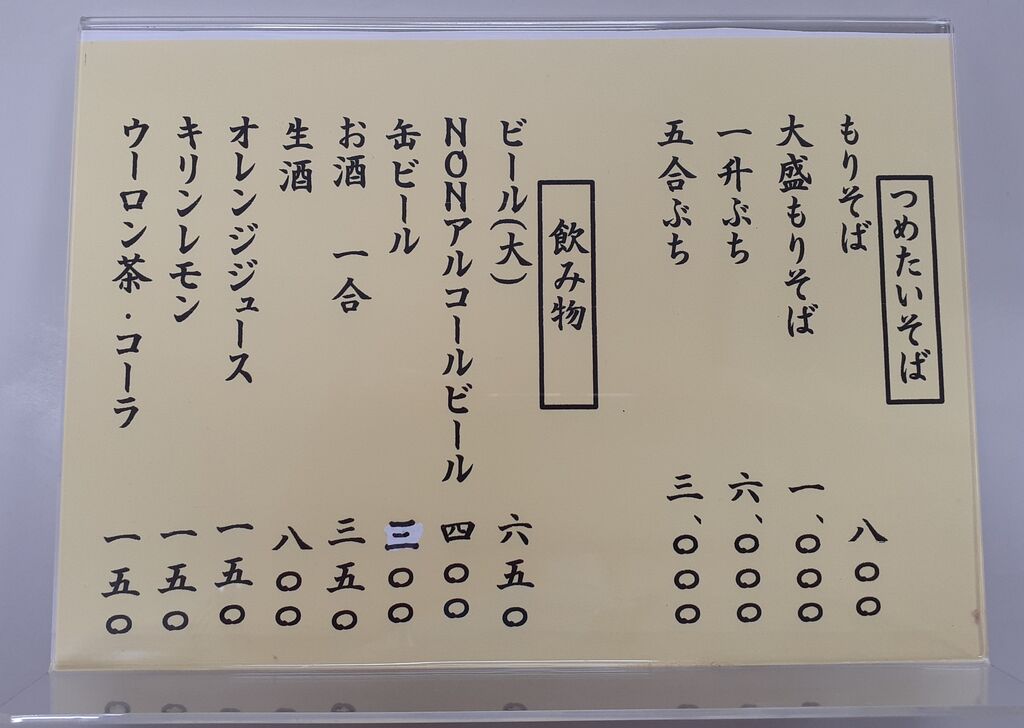 つめたいそば
もりそば 八〇〇
大盛もりそば 一、〇〇〇
一升ぶち 六、〇〇〇
五合ぶち 三、〇〇〇
飲み物
ビール(大) 六五〇
NONアルコールビール 四〇〇
缶ビール 三〇〇
お酒 一合 三五〇
生酒 八〇〇
オレンジジュース 一五〇
キリンレモン 一五〇
ウーロン茶・コーラ 一五〇